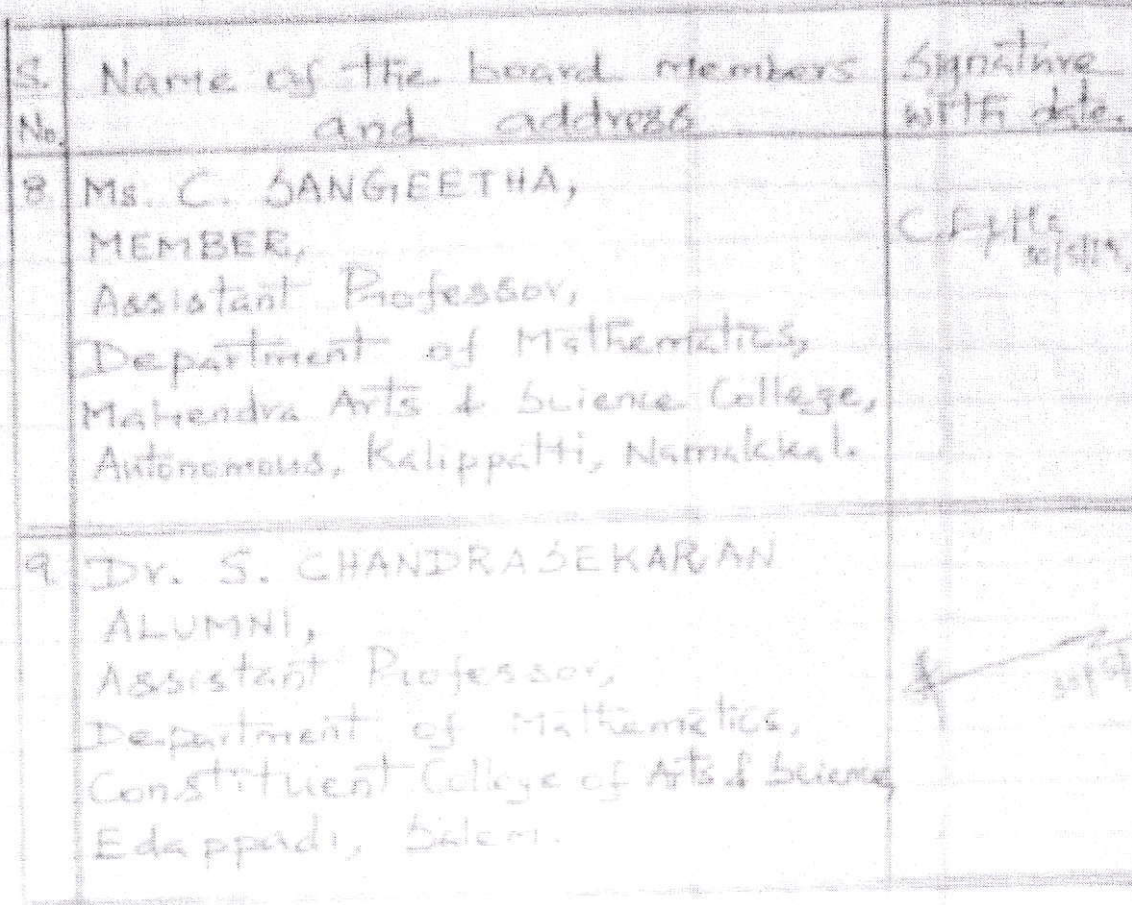 S. No. Name of the board members and address Signature with date.
8 Ms. C. SANGEETHA,
MEMBER,
Assistant Professor,
Department of Mathematics,
Mahendra Arts & Science College,
Autonomous, Kalippatti, Namakkal.
9 Dr. S. CHANDRASEKARAN
ALUMNI,
Assistant Professor,
Department of Mathematics,
Constituent College of Arts & Science,
Edappadi, Salem.